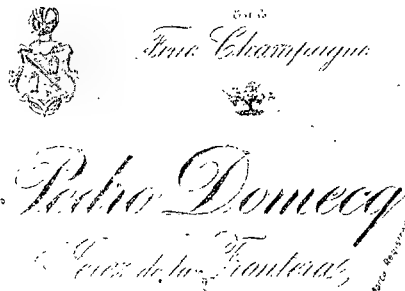 Fine Champagne
Pedro Domecq
Jerez de la Frontera
Marca Registrada